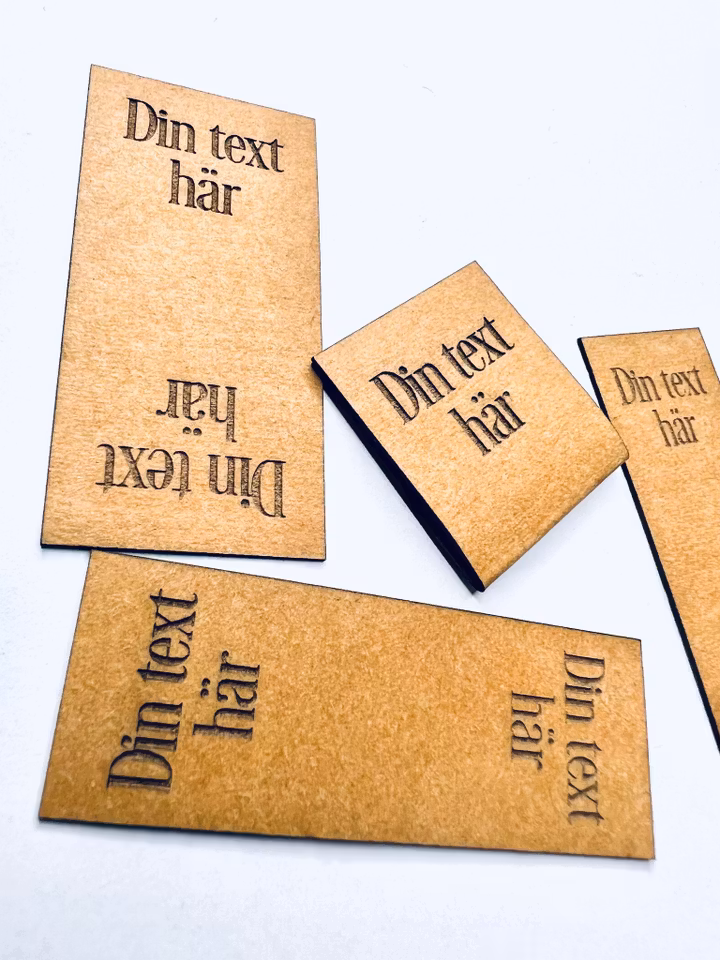 Din text
här
Din text
här
Din text
här
Din text
här
Din text
här
Din text
här